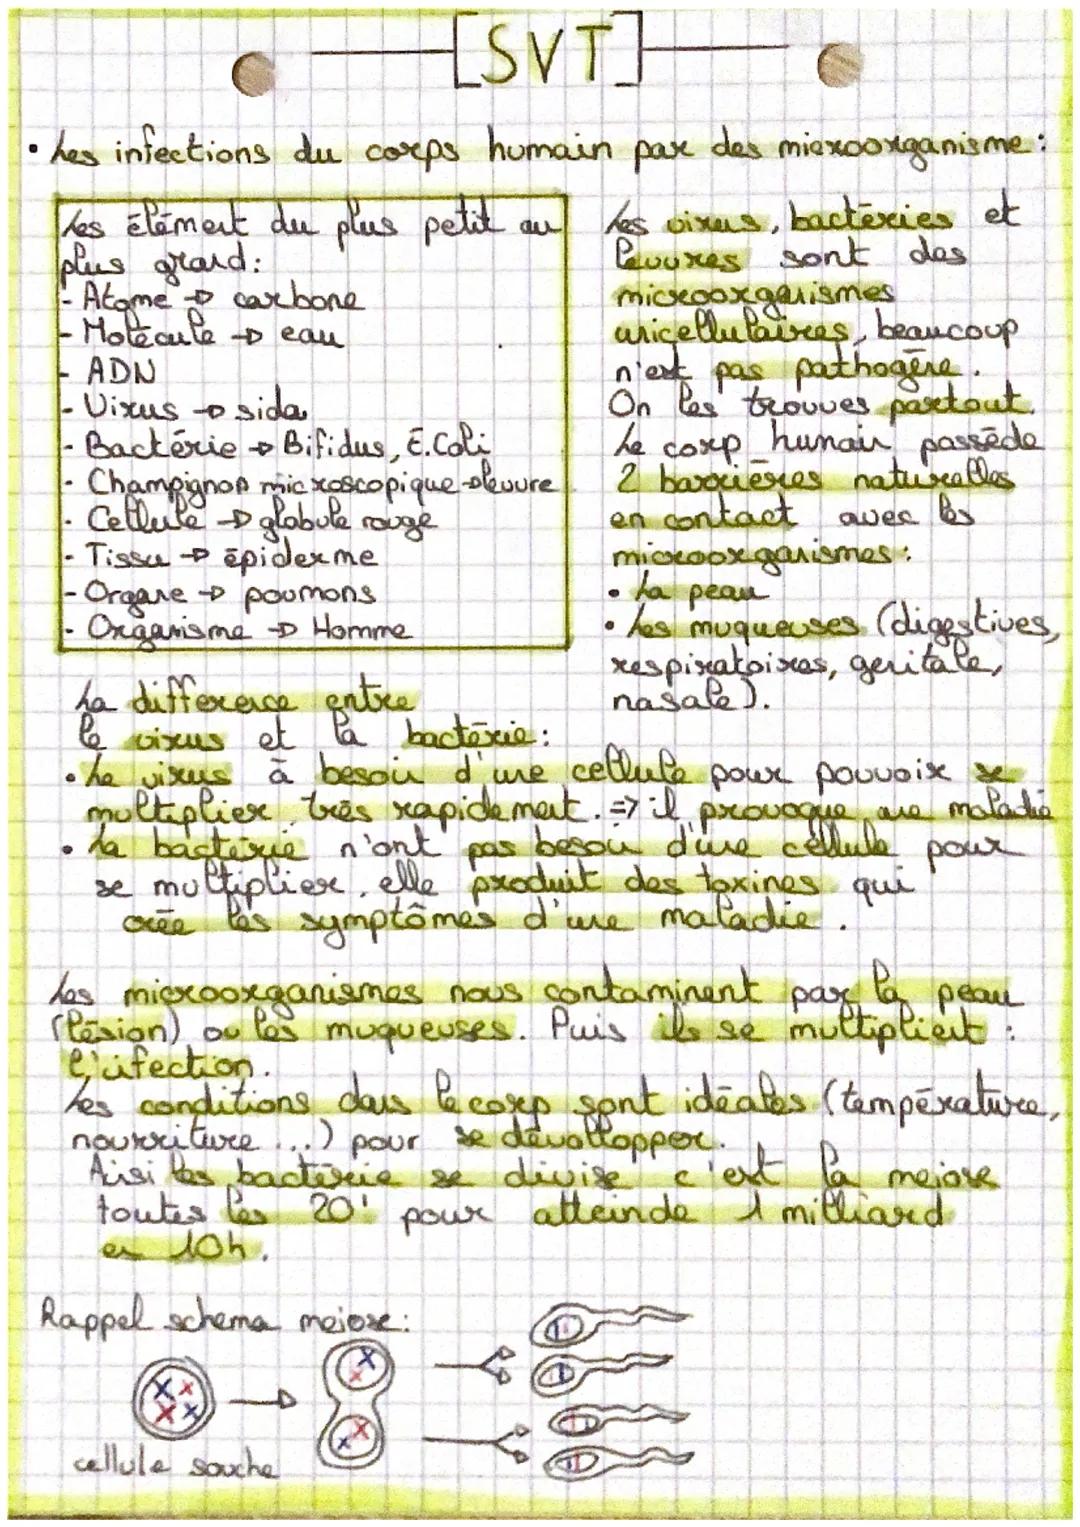 [SVT]
• Les infections du corps humain par des microorganisme :
Les élément du plus petit au
plus grand :
- Atome → carbone
- Molécule → eau
- ADN
- Virus → sida
- Bactérie → Bifidus, E.Coli
- Champignon microscopique → levure
- Cellule → globule rouge
- Tissu → épiderme
- Organe → poumons
- Organisme → Homme
Les virus, bactéries et
levures sont des
microorganismes
unicellulaires, beaucoup
n'est pas pathogène.
On les trouves partout.
Le corp humain possède
2 barrières naturelles
en contact avec les
microorganismes :
• La peau
• Les muqueuses (digestives,
respiratoires, genitale,
nasale).
La difference entre
le virus et la bactérie :
• Le virus à besoin d'une cellule pour pouvoir se
multiplier très rapidement. => il provoque une maladie
• La bactérie n'ont pas besoin d'une cellule pour
se multiplier, elle produit des toxines qui
crée les symptômes d'une maladie.
Les microorganismes nous contaminent par la peau
(lésion) ou les muqueuses. Puis ils se multiplient :
l'infection.
Les conditions dans le corp sont idéales (température,
nourriture ...) pour se dévellopper.
Ainsi les bactérie se divise c'est la meiose
toutes les 20' pour atteinde 1 milliard
en 10h.
Rappel schema meiose :
cellule souche